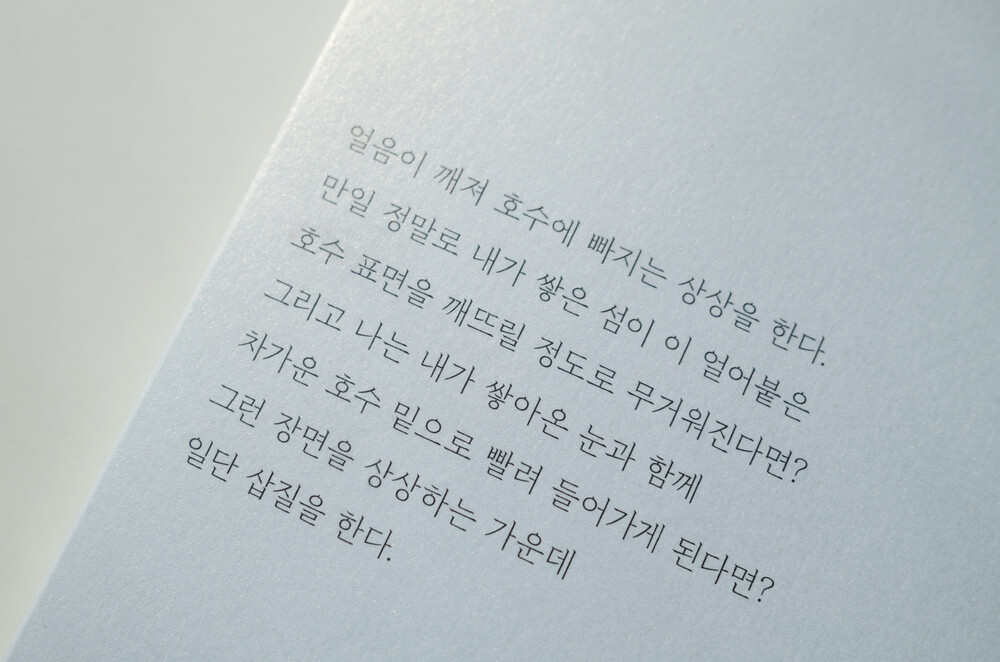 얼음이 깨져 호수에 빠지는 상상을 한다.
만일 정말로 내가 쌓은 섬이 이 얼어붙은
호수 표면을 깨뜨릴 정도로 무거워진다면?
그리고 나는 내가 쌓아온 눈과 함께
차가운 호수 밑으로 빨려 들어가게 된다면?
그런 장면을 상상하는 가운데
일단 삽질을 한다.